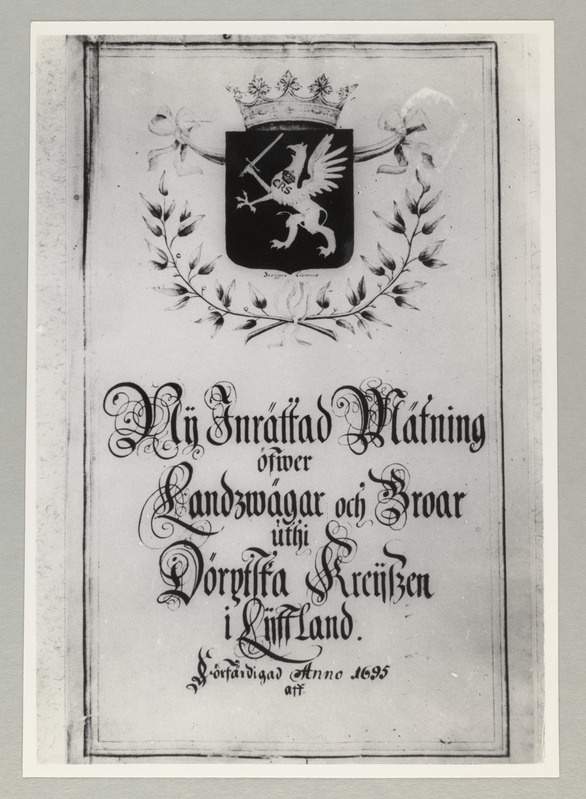 CRS
Insignia Livoniæ
Nÿ Inrättad Mätning
öfwer
Landzwägar och Broar
uthi
Dörptska Kreÿszen
i Lÿffland.
Förfärdigad Anno 1695
aff